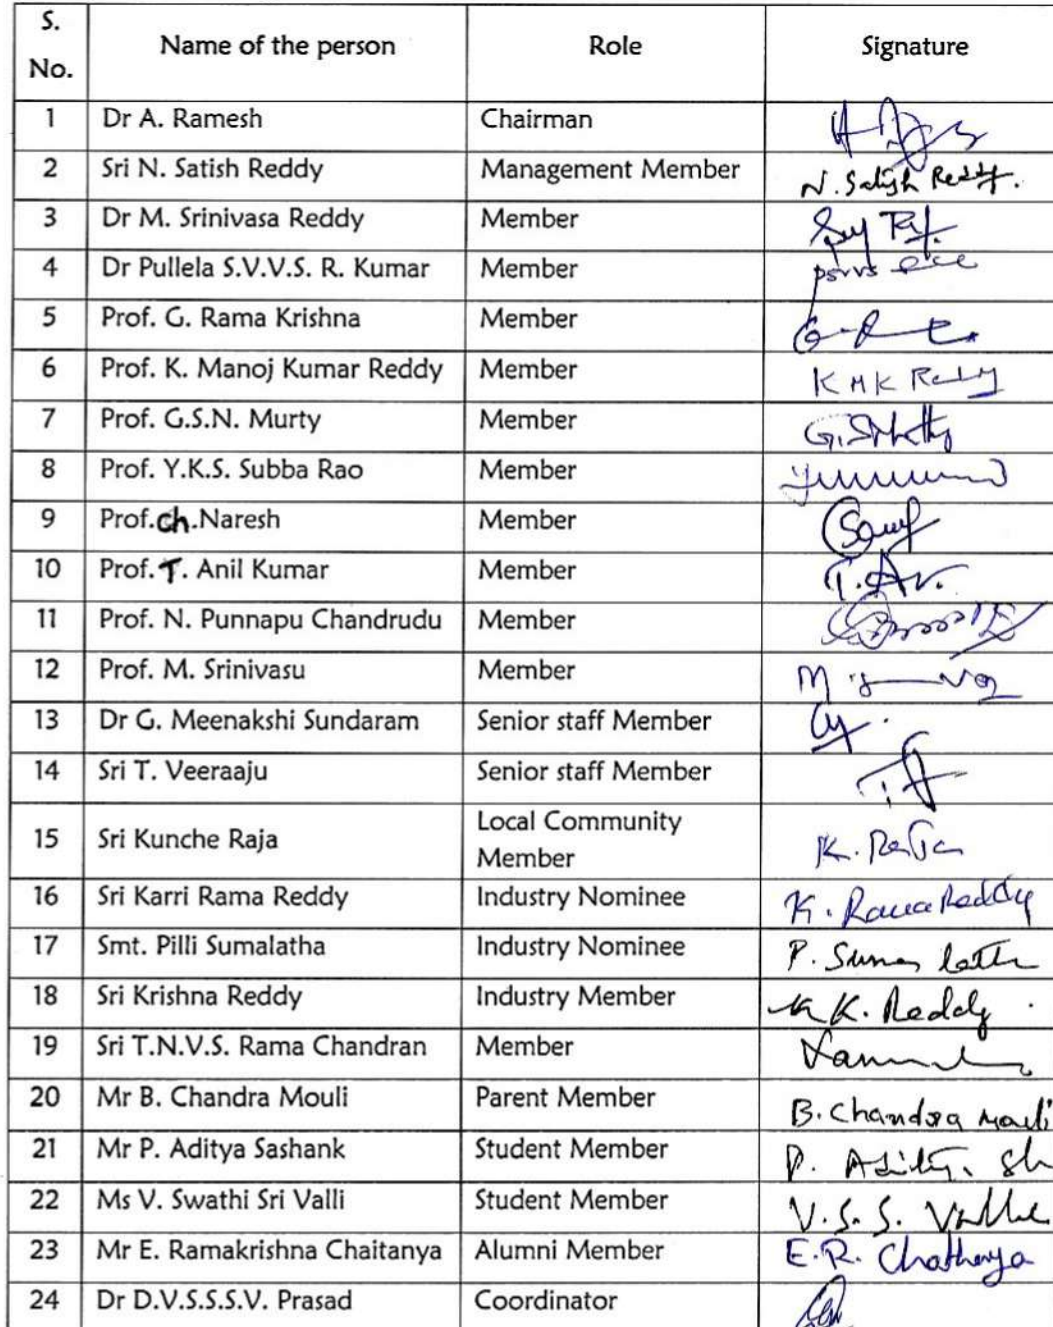 S. No. Name of the person Role Signature
1 Dr A. Ramesh Chairman
2 Sri N. Satish Reddy Management Member N. Satish Reddy.
3 Dr M. Srinivasa Reddy Member
4 Dr Pullela S.V.V.S. R. Kumar Member
5 Prof. G. Rama Krishna Member
6 Prof. K. Manoj Kumar Reddy Member K M K Reddy
7 Prof. G.S.N. Murty Member
8 Prof. Y.K.S. Subba Rao Member
9 Prof.ch.Naresh Member
10 Prof. T. Anil Kumar Member
11 Prof. N. Punnapu Chandrudu Member
12 Prof. M. Srinivasu Member
13 Dr G. Meenakshi Sundaram Senior staff Member
14 Sri T. Veeraaju Senior staff Member
15 Sri Kunche Raja Local Community Member K. Raja
16 Sri Karri Rama Reddy Industry Nominee K. Rama Reddy
17 Smt. Pilli Sumalatha Industry Nominee P. Suma latha
18 Sri Krishna Reddy Industry Member K. Reddy
19 Sri T.N.V.S. Rama Chandran Member
20 Mr B. Chandra Mouli Parent Member B. Chandra Mouli
21 Mr P. Aditya Sashank Student Member
22 Ms V. Swathi Sri Valli Student Member V. S. S. Valli
23 Mr E. Ramakrishna Chaitanya Alumni Member E.R. Chathanya
24 Dr D.V.S.S.S.V. Prasad Coordinator